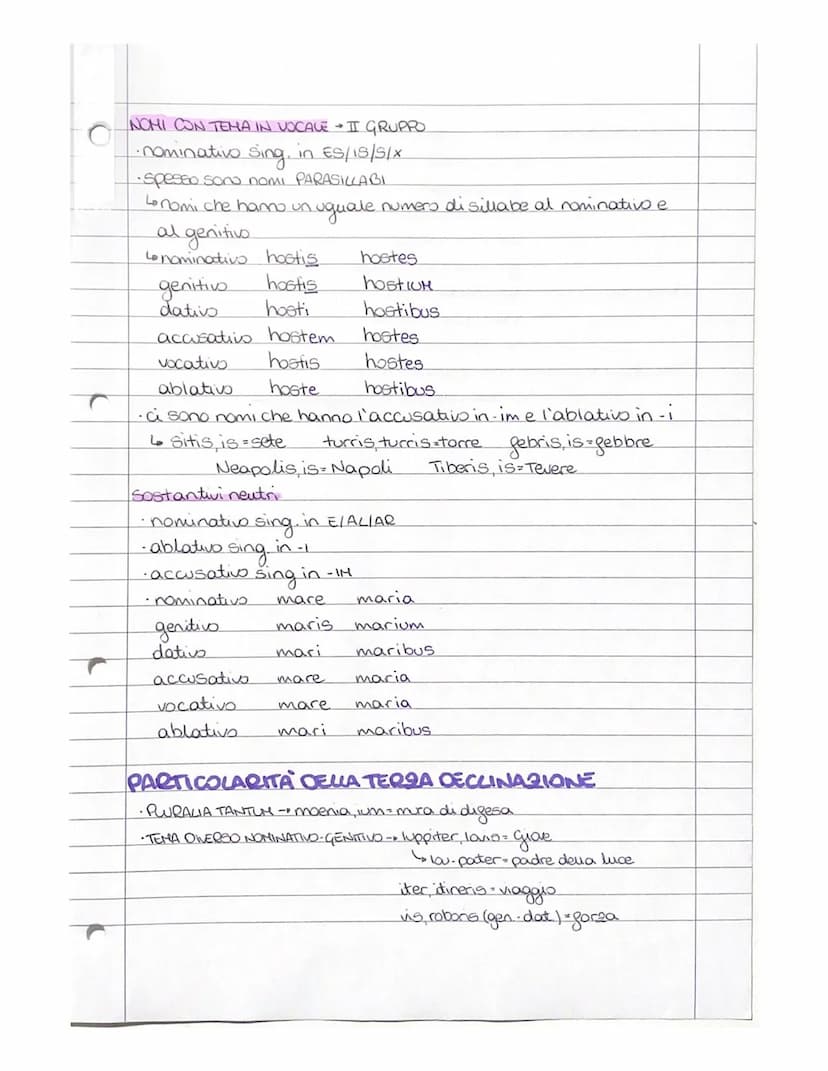 NOMI CON TEMA IN VOCALE → II GRUPPO
·nominativo sing. in ES/IS/S/X
·spesso sono nomi PARASILLABI
↳nomi che hanno un uguale numero di sillabe al nominativo e
al genitivo
↳nominativo hostis hostes
genitivo hostis hostIUM
dativo hosti hostibus
accusativo hostem hostes
vocativo hostis hostes
ablativo hoste hostibus
·ci sono nomi che hanno l'accusativo in -im e l'ablativo in -i
↳ sitis, is = sete turris, turris = torre febris, is = febbre
Neapolis, is = Napoli Tiberis, is = Tevere
Sostantivi neutri
·nominativo sing. in E/AL/AR
·ablativo sing. in -I
·accusativo sing in -IM
·nominativo mare maria
genitivo maris marium
dativo mari maribus
accusativo mare maria
vocativo mare maria
ablativo mari maribus
PARTICOLARITÀ DELLA TERZA DECLINAZIONE
·PLURALIA TANTUM → moenia, ium = mura di difesa
·TEMA DIVERSO NOMINATIVO-GENITIVO → Iuppiter, = Giove
↳ Iov-pater = padre della luce
iter, itineris = viaggio
vis, roboris (gen.-dat.) = forza